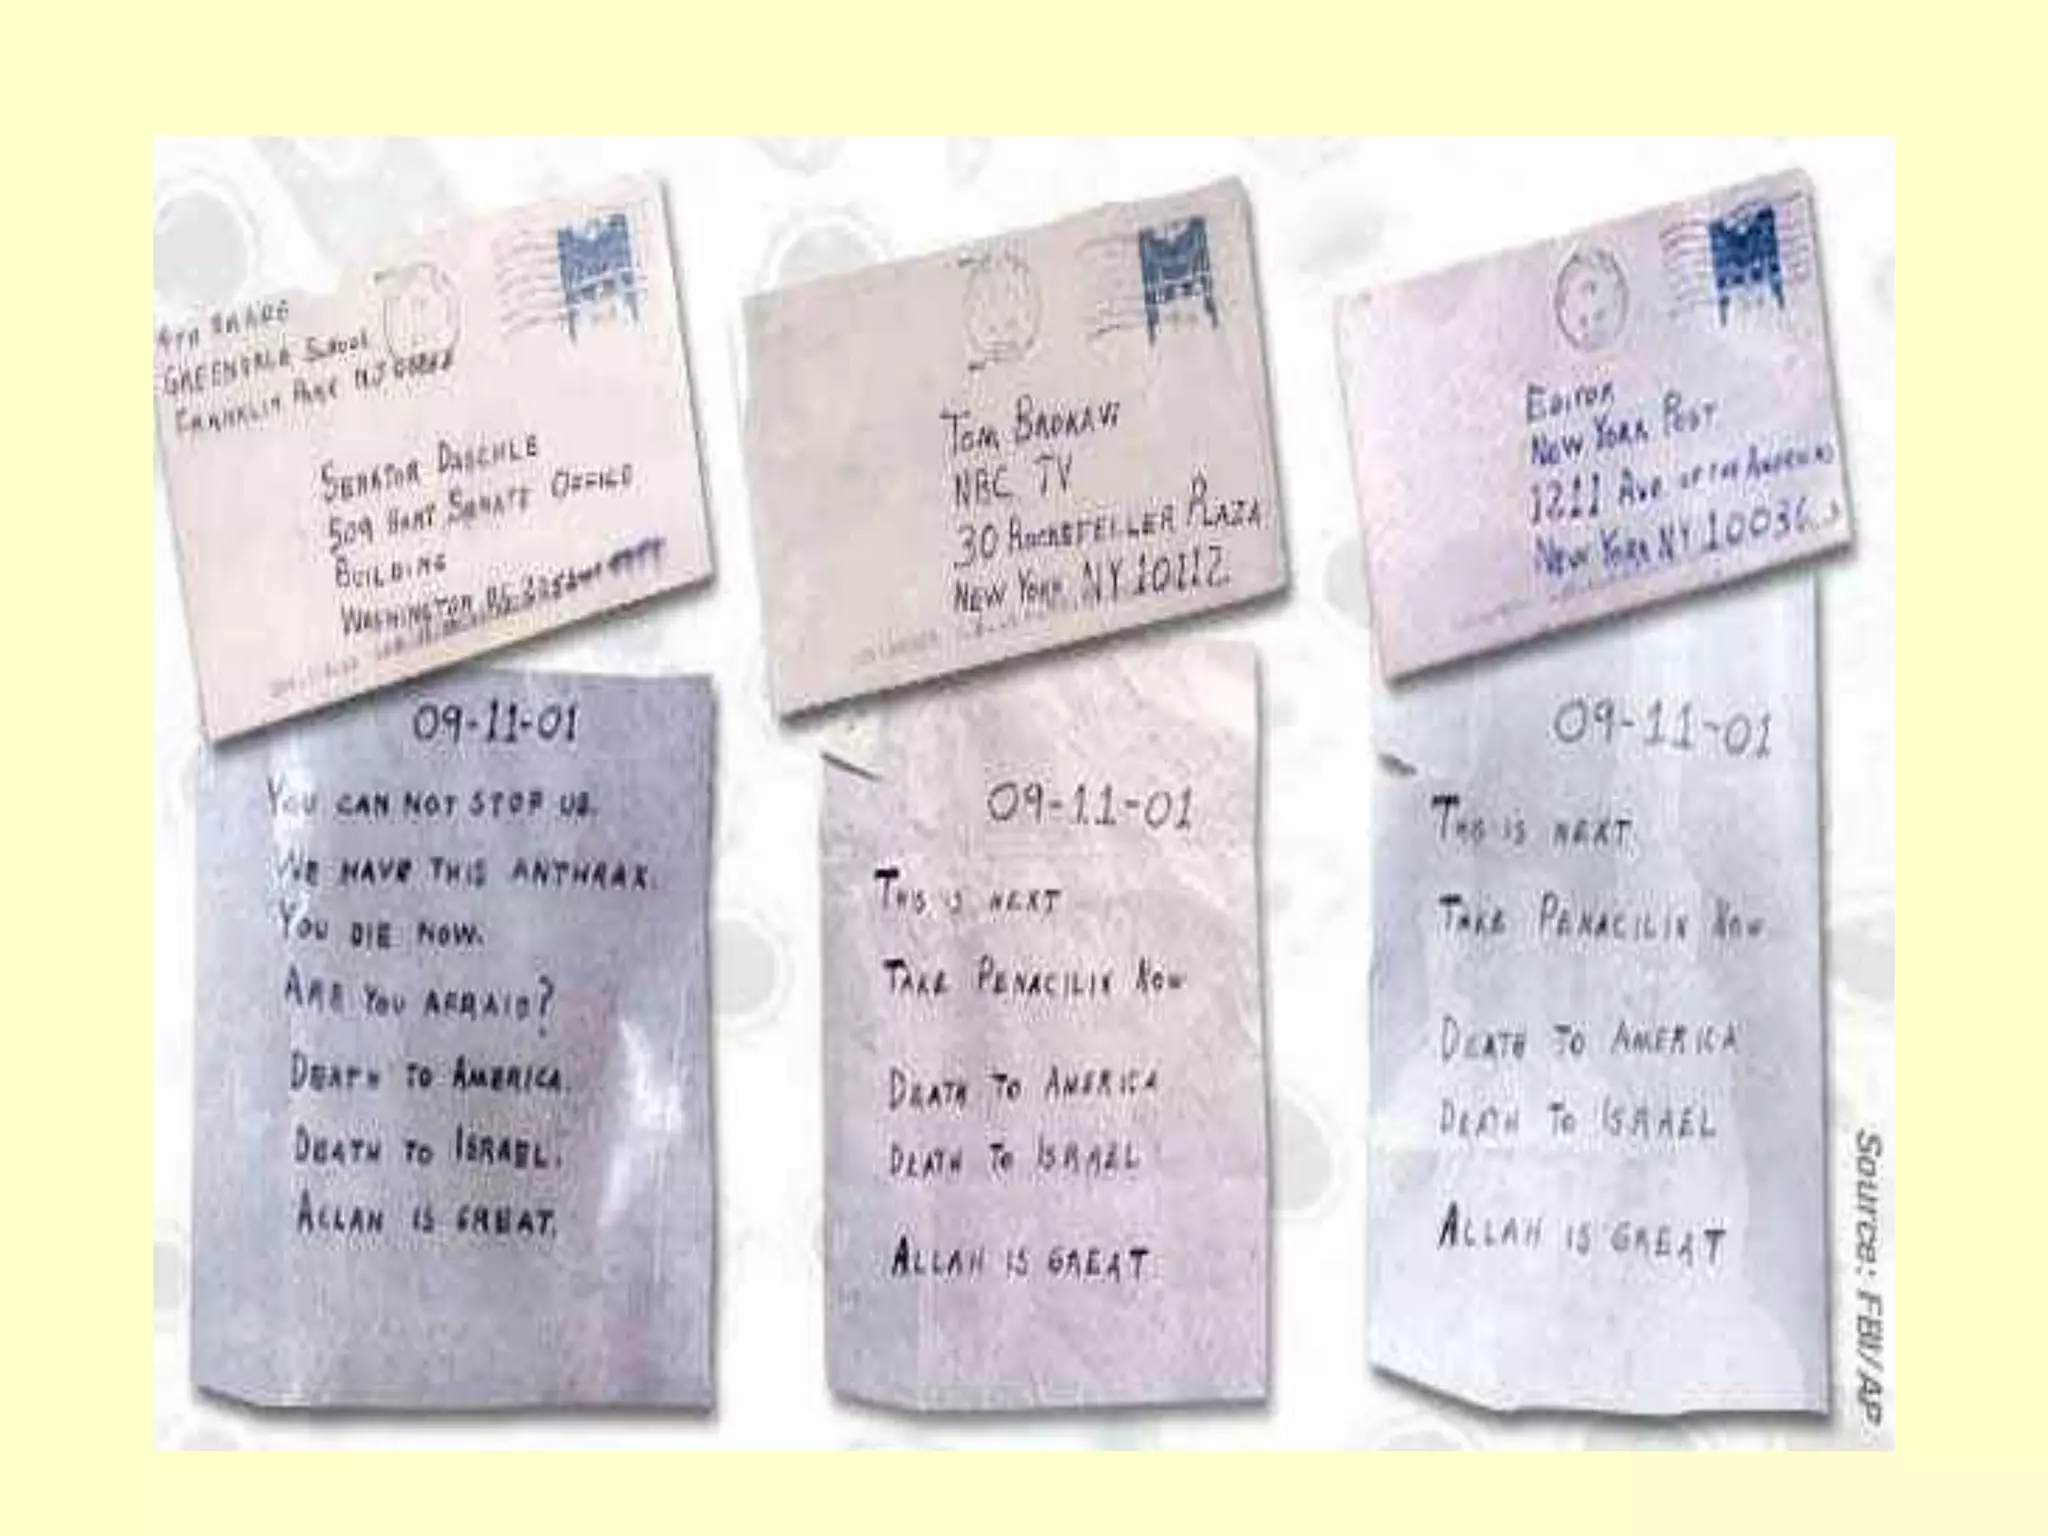 4TH GRADE
GREENDALE SCHOOL
FRANKLIN PARK NJ 08852
SENATOR DASCHLE
509 HART SENATE OFFICE
BUILDING
WASHINGTON
09-11-01
YOU CAN NOT STOP US.
WE HAVE THIS ANTHRAX.
YOU DIE NOW.
ARE YOU AFRAID?
DEATH TO AMERICA.
DEATH TO ISRAEL.
ALLAH IS GREAT.
TOM BROKAW
NBC TV
30 ROCKEFELLER PLAZA
NEW YORK NY 10112
09-11-01
THIS IS NEXT
TAKE PENACILIN NOW
DEATH TO AMERICA
DEATH TO ISRAEL
ALLAH IS GREAT
EDITOR
NEW YORK POST
1211 AVE OF THE AMERICAS
NEW YORK NY 10036
09-11-01
THIS IS NEXT
TAKE PENACILIN NOW
DEATH TO AMERICA
DEATH TO ISRAEL
ALLAH IS GREAT
Source: FBI/AP